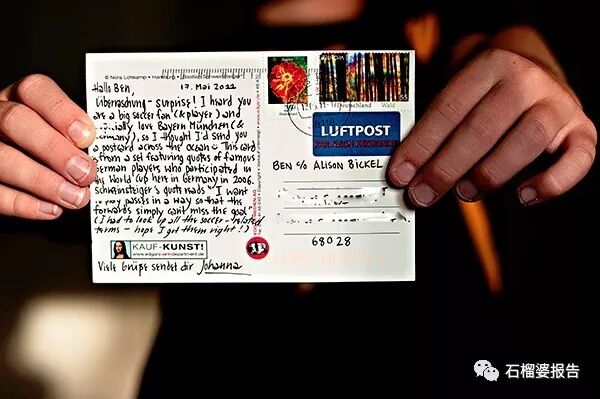 © Nora Lohkamp • Hamburg
17. Mai 2011
Hallo Ben,
Überraschung - surprise! I heard you
are a big soccer fan (& player) and
especially love Bayern München (&
Germany), so I thought I'd send you
a postcard across the ocean This card
is from a set featuring quotes of famous
German players who participated in
the World Cup here in Germany in 2006.
Schweinsteiger's quote reads "I want
to play passes in a way so that the
forwards simply can't miss the goal"
(I had to look up all the soccer-related
terms - hope I got them right!)
KAUF-KUNST!
www.edgars-art-department.de
Viele Grüße sendet dir Johanna
Deutschland
Wald
LUFTPOST
PAR AVION
BEN c/o ALISON BICKEL
68028
石榴婆报告